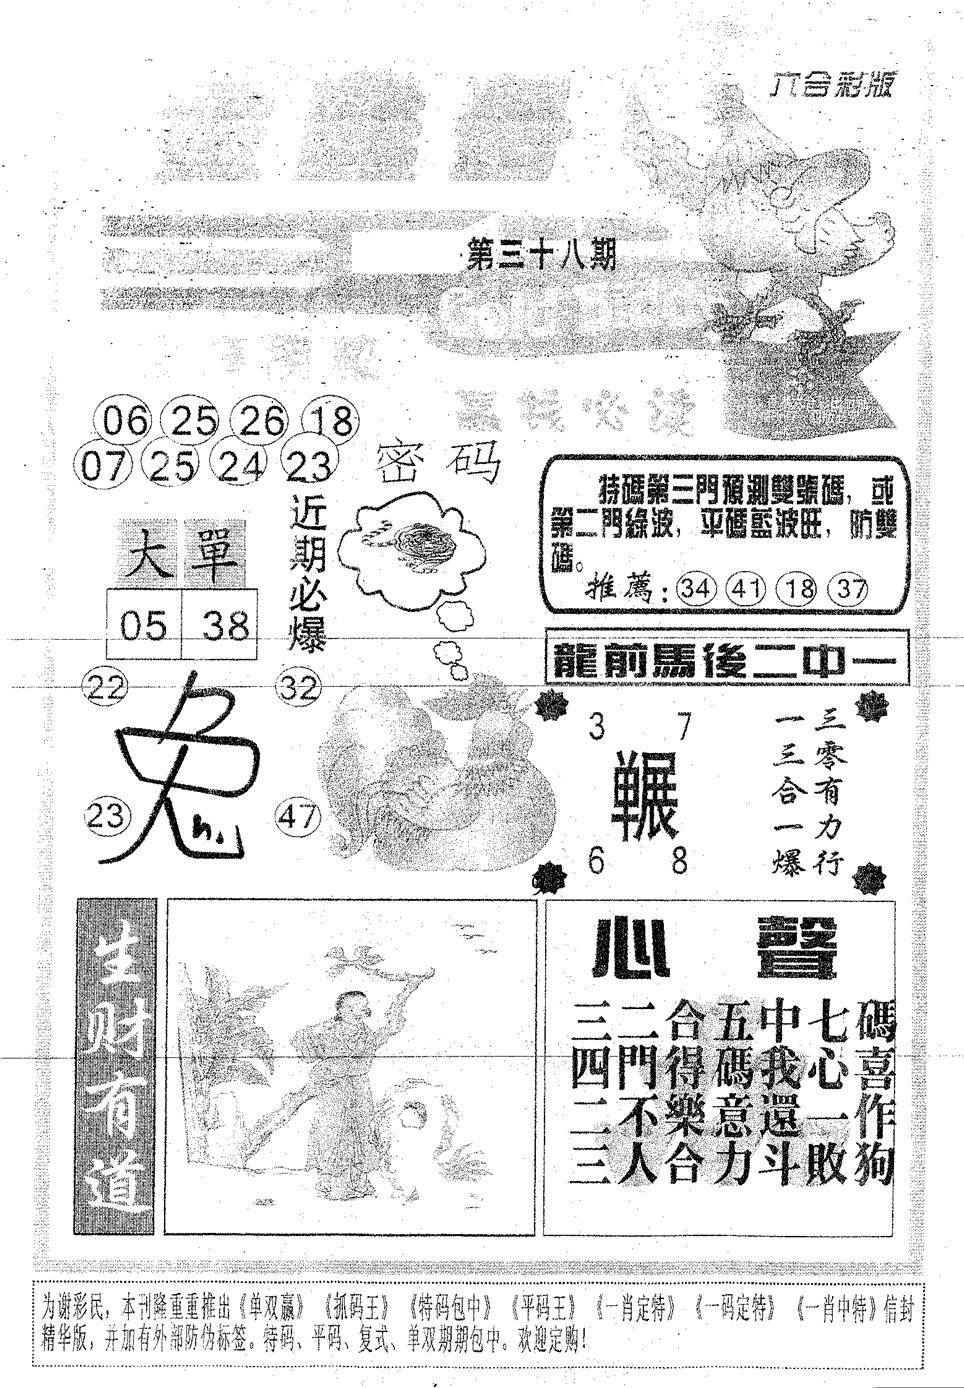 六合彩版
第三十八期
赢钱必读
06 25 26 18
07 25 24 23
密码
近期必爆
大單
05 38
特碼第三門預測雙號碼，或
第二門綠波，平碼藍波旺，防雙
碼。
推薦：34 41 18 37
龍前馬後二中一
22 32
兔
23 47
3 7
6 8
三零有力行
一三合一爆
生财有道
心聲
三二合五中七碼
四門得碼我心喜
二不樂意還一作
三人合力斗敗狗
为谢彩民，本刊隆重重推出《单双赢》《抓码王》《特码包中》《平码王》《一肖定特》《一码定特》《一肖中特》信封
精华版，并加有外部防伪标签。特码、平码、复式、单双期期包中。欢迎定购！